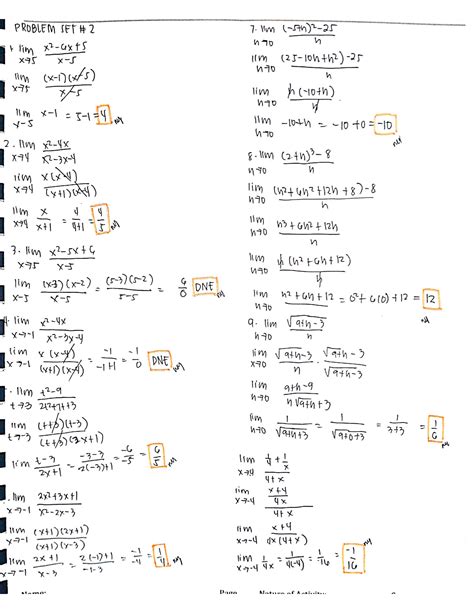 PROBLEM SET # 2
1. lim x→5 x²-6x+5 / x-5
lim x→5 (x-1)(x-5) / x-5
lim x→5 x-1 = 5-1 = 4
2. lim x→4 x²-4x / x²-3x-4
lim x→4 x(x-4) / (x+1)(x-4)
lim x→4 x / x+1 = 4 / 4+1 = 4/5
3. lim x→5 x²-5x+6 / x-5
lim x→5 (x-3)(x-2) / x-5 = (5-3)(5-2) / 5-5 = 6/0 DNE
4. lim x→-1 x²-4x / x²-3x-4
lim x→-1 x(x-4) / (x+1)(x-4) = -1 / -1+1 = -1/0 DNE
lim t→-3 t²-9 / 2t²+7t+3
lim t→-3 (t+3)(t-3) / (t+3)(2x+1)
lim t-3 / 2x+1 = -3-3 / 2(-3)+1 = -6/-5 = 6/5
lim x→-1 2x²+3x+1 / x²-2x-3
lim x→-1 (x+1)(2x+1) / (x+1)(x-3)
lim x→-1 2x+1 / x-3 = 2(-1)+1 / -1-3 = -1/-4 = 1/4
7. lim h→0 (-5+h)²-25 / h
lim h→0 (25-10h+h²)-25 / h
lim h→0 h(-10+h) / h
lim h→0 -10+h = -10+0 = -10
8. lim h→0 (2+h)³-8 / h
lim h→0 (h³+6h²+12h+8)-8 / h
lim h→0 h³+6h²+12h / h
lim h→0 h(h²+6h+12) / h
lim h→0 h²+6h+12 = 0²+6(0)+12 = 12
9. lim h→0 √9+h-3 / h
lim h→0 √9+h-3 / h · √9+h-3 / √9+h-3
lim h→0 9+h-9 / h√9+h+3
lim h→0 1 / √9+h+3 = 1 / √9+0+3 = 1 / 3+3 = 1/6
lim x→4 1/4+1/x / 4+x
lim x→-4 x+4 / 4x / 4+x
lim x→-4 x+4 / 4x(4+x)
lim x→-4 1/4x = 1/4(-4) = 1/-16 = -1/16
Name:
Page
Nature of Activity: